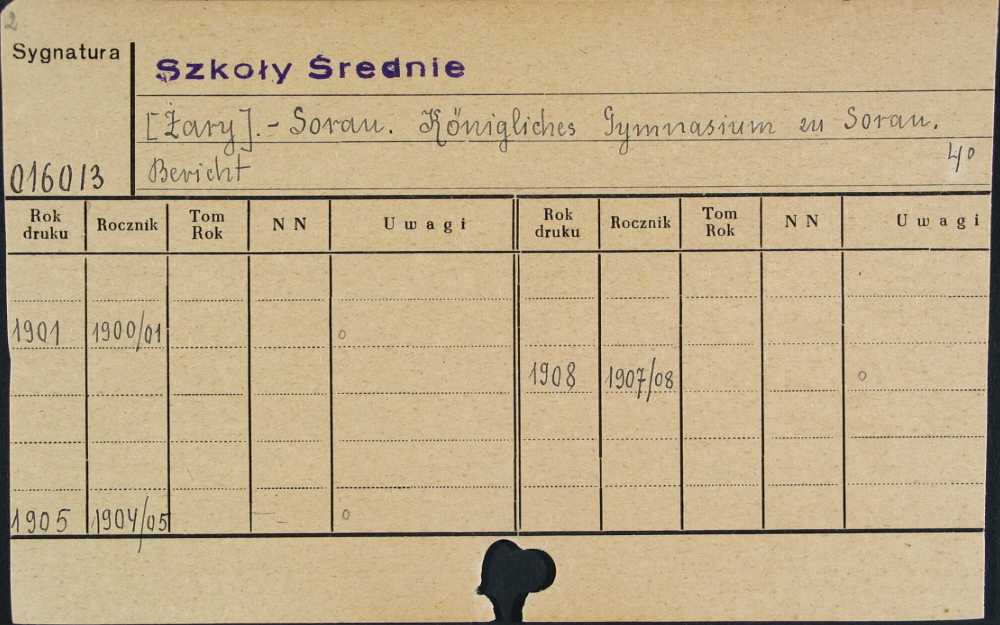 2
Sygnatura
Szkoły Średnie
[Żary].- Sorau. Königliches Gymnasium zu Sorau.
016013
Bericht
4°
Rok druku Rocznik Tom Rok N N Uwagi Rok druku Rocznik Tom Rok N N Uwagi
1901 1900/01 o
1908 1907/08 o
1905 1904/05 — o